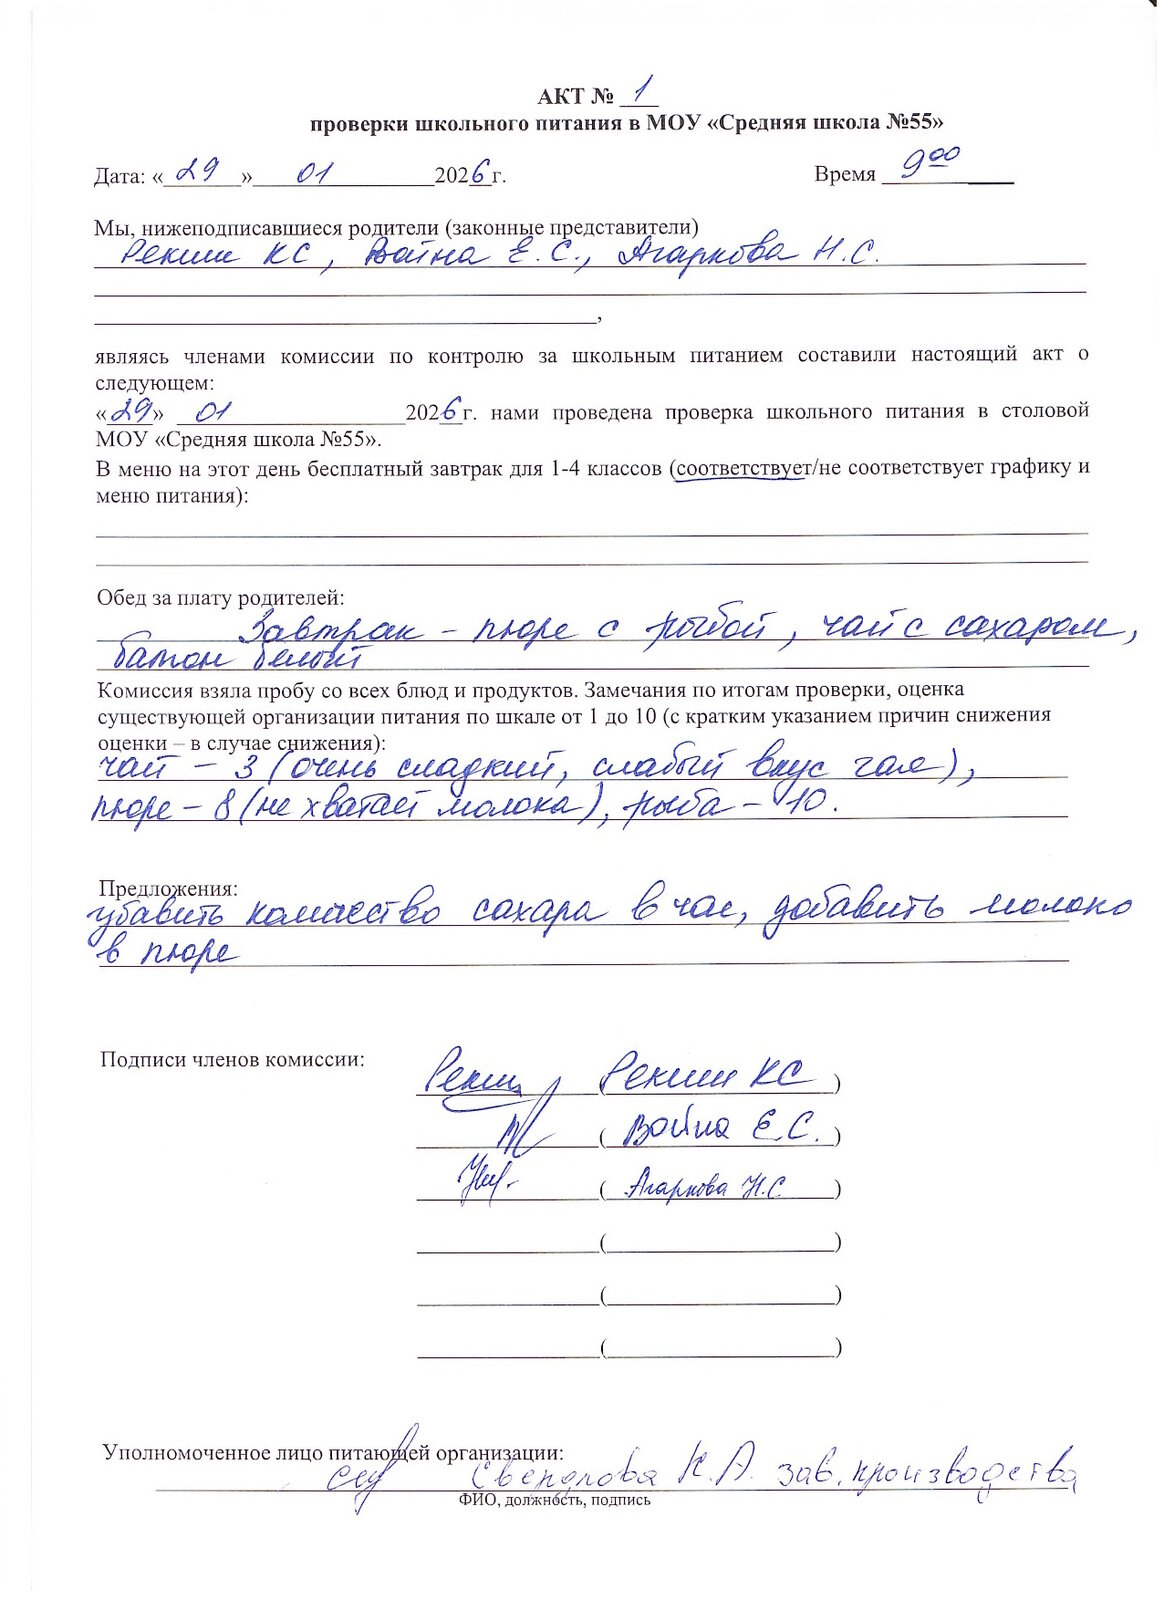 АКТ № 1
проверки школьного питания в МОУ «Средняя школа №55»
Дата: «29» 01 2026г. Время 9⁰⁰
Мы, нижеподписавшиеся родители (законные представители)
Рекши КС, Война Е.С., Агаркова Н.С.
,
являясь членами комиссии по контролю за школьным питанием составили настоящий акт о
следующем:
«29» 01 2026г. нами проведена проверка школьного питания в столовой
МОУ «Средняя школа №55».
В меню на этот день бесплатный завтрак для 1-4 классов (соответствует/не соответствует графику и
меню питания):
Обед за плату родителей:
Завтрак – пюре с рыбой, чай с сахаром,
батон белый
Комиссия взяла пробу со всех блюд и продуктов. Замечания по итогам проверки, оценка
существующей организации питания по шкале от 1 до 10 (с кратким указанием причин снижения
оценки – в случае снижения):
чай – 3 (очень сладкий, слабый вкус чая),
пюре – 8 (не хватает молока), рыба – 10.
Предложения:
убавить количество сахара в чае, добавить молоко
в пюре
Подписи членов комиссии:
(Рекши КС)
(Война Е.С.)
(Агаркова Н.С.)
()
()
()
Уполномоченное лицо питающей организации:
Свердлова К.А. зав. производства
ФИО, должность, подпись